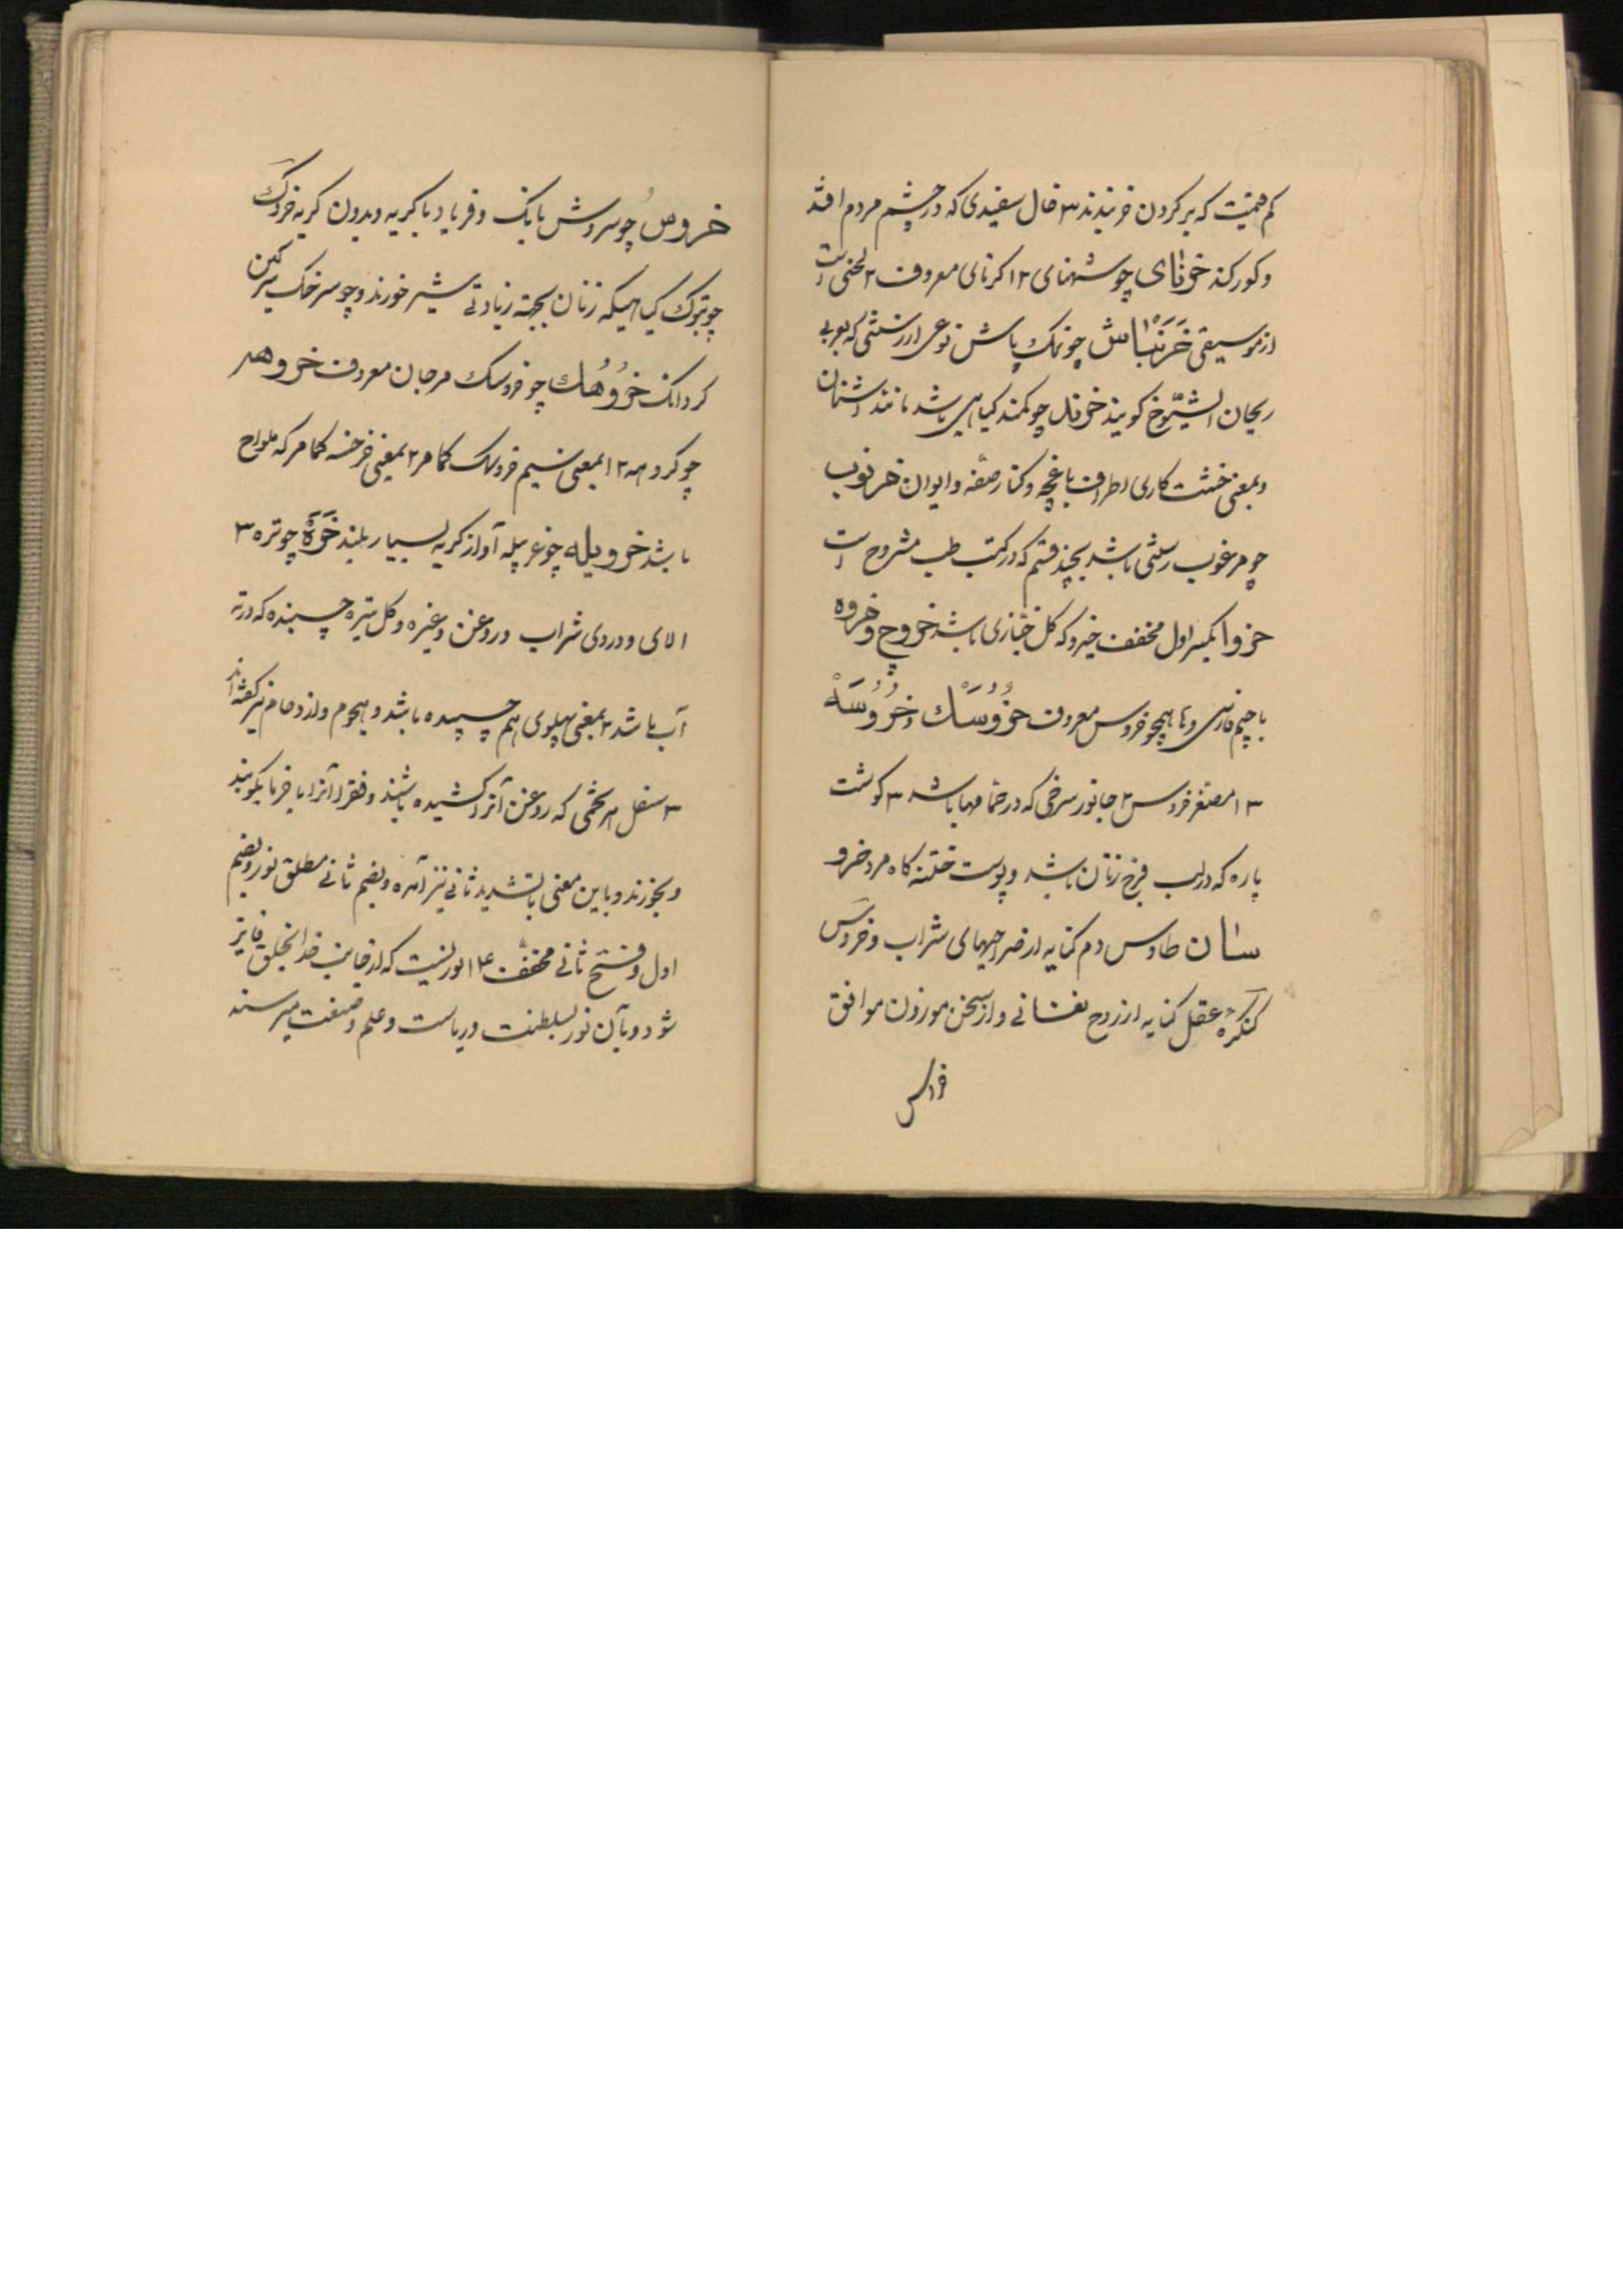 کم قیمت که بر گردن خر بندند ۳ خال سفیدی که در چشم مردم افتد
و کور کند خرنای چو شهنای ۲ ا کرنای معروف ۲ لحنی است
از موسیقی خَرَنْباش چو نمک پاش نوعی از رستنی که بعربی
ریحان الشیوخ کویند خرند چو کمند کیاهی باشد مانند اشنان
و بمعنی خشت کاری اطراف باغچه و کنار صفه و ایوان خرنوب
چو مرغوب رستنی باشد بچند قسم که در کتب طب مشروح است
خروا بکسر اول مخفف خیرو که کل خبازی باشد خروچ و خروه
با چیم فارسی و ها همچو خروس معروف خُرُوسَك و خُرُوسَه
۳ ا مصغر خروس ۲ جانور سرخی که در حمامها باشد ۳ کوشت
پاره که در لب فرج زنان باشد و پوست ختنه کاه مرد خرو
سان طاوس دم کنایه از صراحیهای شراب و خروس
کنگره عقل کنایه از روح نفسانی و از سخن موزون موافق
خروش چو سروش بانک و فریاد با کریه و بدون کریه خروک
چو تبوک کیاهیکه زنان بجهته زیادتی شیر خورند و چو سرخک سرکین
کردانک خُرُوُهك چو خروسک مرجان معروف خروهه
چو کروهه ۲ ا بمعنی سیم خروسک کمامر ۲ بمعنی خرخسه کمامر که ملواح
باشد خرویله چو غربیله آواز کریه بسیار بلند خَرَه چو تره ۳
ا لای و دردی شراب و روغن و غیره و کل تیره چسبنده که در ته
آب باشد ۲ بمعنی پهلوی هم چسپیده باشد و هجوم و ازدحام نیز کفته اند
۳ سفل هر تخمی که روغن آنرا کشیده باشند و فقرا آنرا با خرما بکوبند
و بخورند و باین معنی با تشدید ثانی نیز آمده و بضم ثانی مطلق نور و بضم
اول و فتح ثانی مخفف ۴ ا نوریست که از جانب خدا بخلق فایز
شود و بآن نور بسلطنت و ریاست و علم و صنعت میرسند